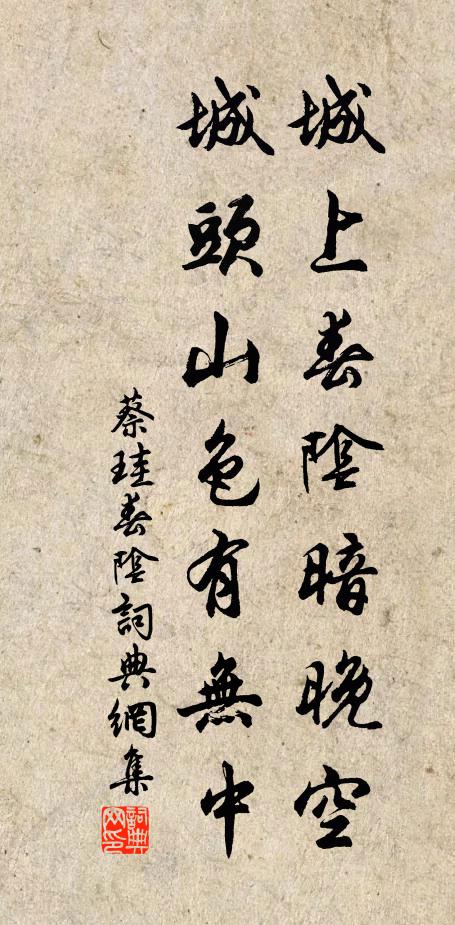 城上春陰暗晚空
城頭山色有無中
蔡珪春陰詞典網集
詞典網印